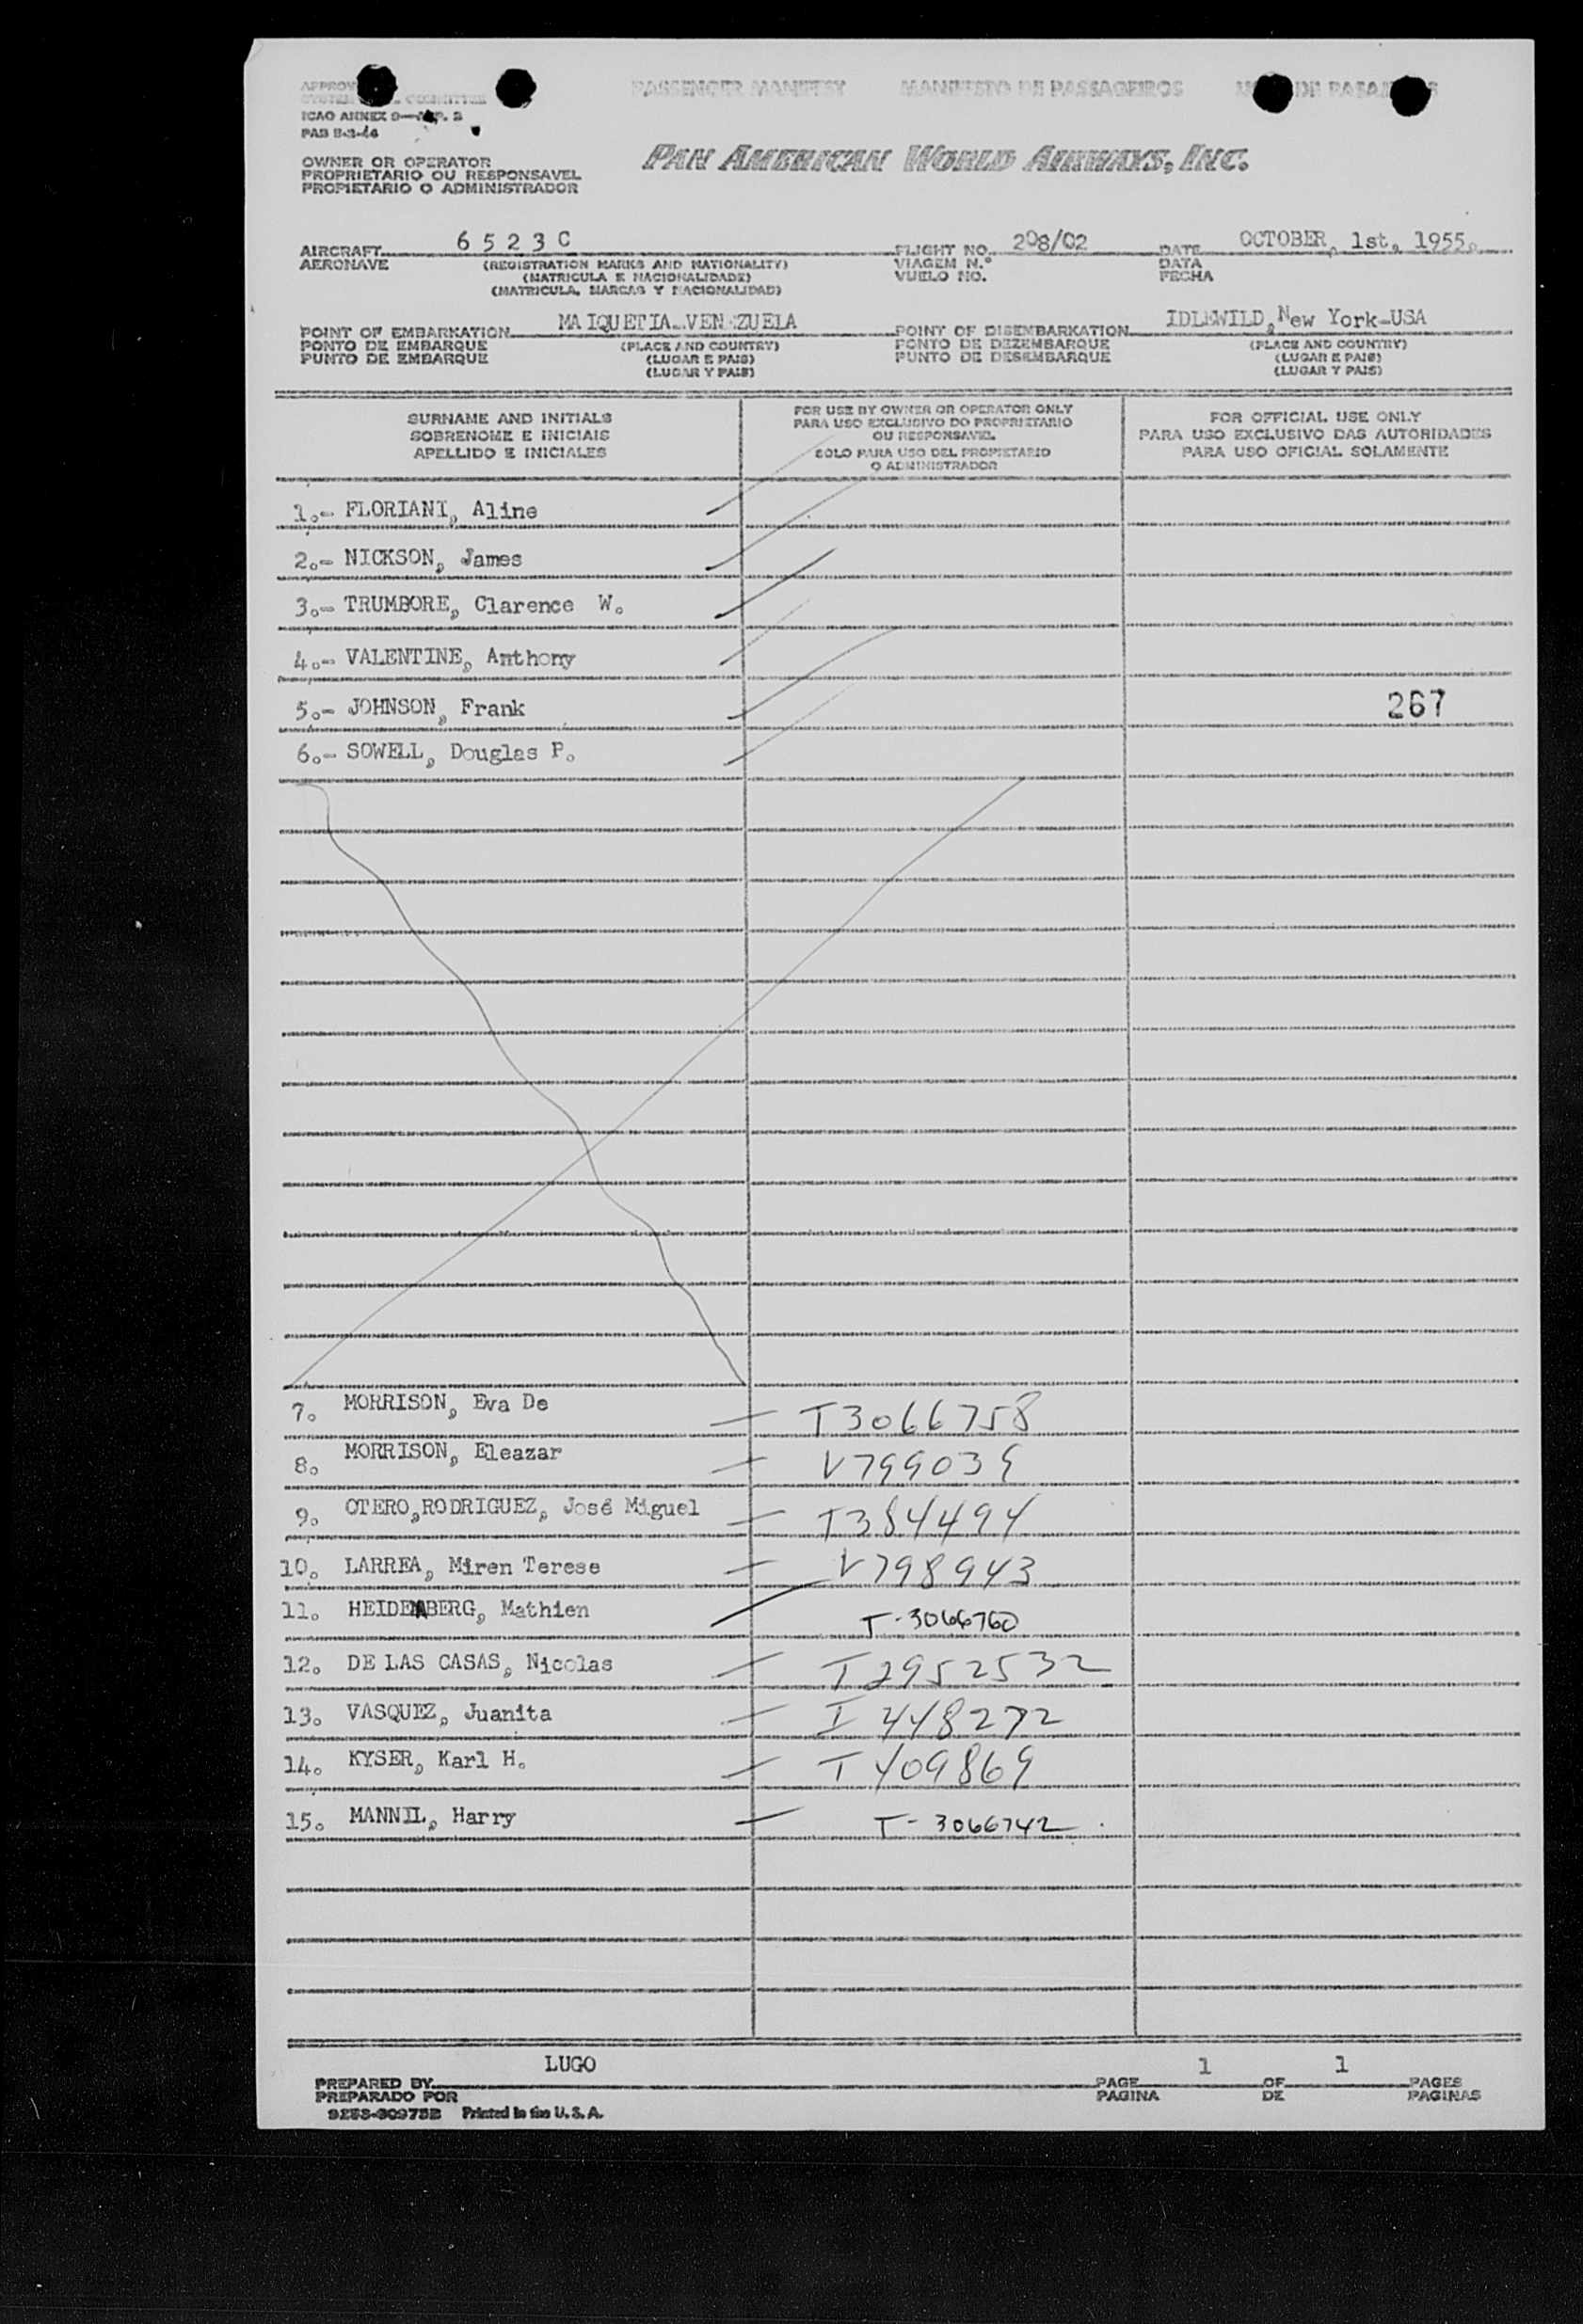 PASSENGER MANIFEST MANIFESTO DE PASSAGEIROS DE
ICAO ANNEX 9
OWNER OR OPERATOR
PROPRIETARIO OU RESPONSAVEL
PROPIETARIO O ADMINISTRADOR
PAN AMERICAN WORLD AIRWAYS, INC.
AIRCRAFT 6 5 2 3 C FLIGHT NO. 208/02 DATE OCTOBER, 1st, 1955.
AERONAVE (REGISTRATION MARKS AND NATIONALITY) VIAGEM N.º DATA
(MATRICULA E NACIONALIDADE) VUELO NO. FECHA
(MATRICULA, MARCAS Y NACIONALIDAD)
POINT OF EMBARKATION MAIQUETIA-VENEZUELA POINT OF DISEMBARKATION IDLEWILD, New York-USA
PONTO DE EMBARQUE (PLACE AND COUNTRY) PONTO DE DEZEMBARQUE (PLACE AND COUNTRY)
PUNTO DE EMBARQUE (LUGAR E PAIS) PUNTO DE DESEMBARQUE (LUGAR E PAIS)
(LUGAR Y PAIS) (LUGAR Y PAIS)
SURNAME AND INITIALS
SOBRENOME E INICIAIS
APELLIDO E INICIALES
FOR USE BY OWNER OR OPERATOR ONLY
PARA USO EXCLUSIVO DO PROPRIETARIO
OU RESPONSAVEL
SOLO PARA USO DEL PROPIETARIO
O ADMINISTRADOR
FOR OFFICIAL USE ONLY
PARA USO EXCLUSIVO DAS AUTORIDADES
PARA USO OFICIAL SOLAMENTE
1.- FLORIANI, Aline
2.- NICKSON, James
3.- TRUMBORE, Clarence W.
4.- VALENTINE, Anthony
5.- JOHNSON, Frank 267
6.- SOWELL, Douglas P.
7. MORRISON, Eva De T3066758
8. MORRISON, Eleazar V799039
9. OTERO,RODRIGUEZ, José Miguel T384494
10. LARREA, Miren Terese V798943
11. HEIDENBERG, Mathien T-3066760
12. DE LAS CASAS, Nicolas T2952532
13. VASQUEZ, Juanita I448272
14. KYSER, Karl H. T409869
15. MANNIL, Harry T-3066742
PREPARED BY LUGO PAGE 1 OF 1 PAGES
PREPARADO POR PAGINA DE PAGINAS
Printed in the U. S. A.